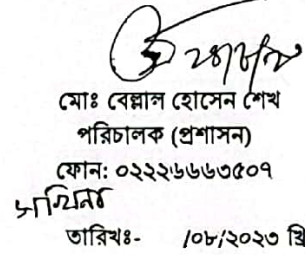 মোঃ বেল্লাল হোসেন শেখ
পরিচালক (প্রশাসন)
ফোন: ০২২২৬৬৬৩৫০৭
তারিখঃ- /০৮/২০২৩ খ্রি